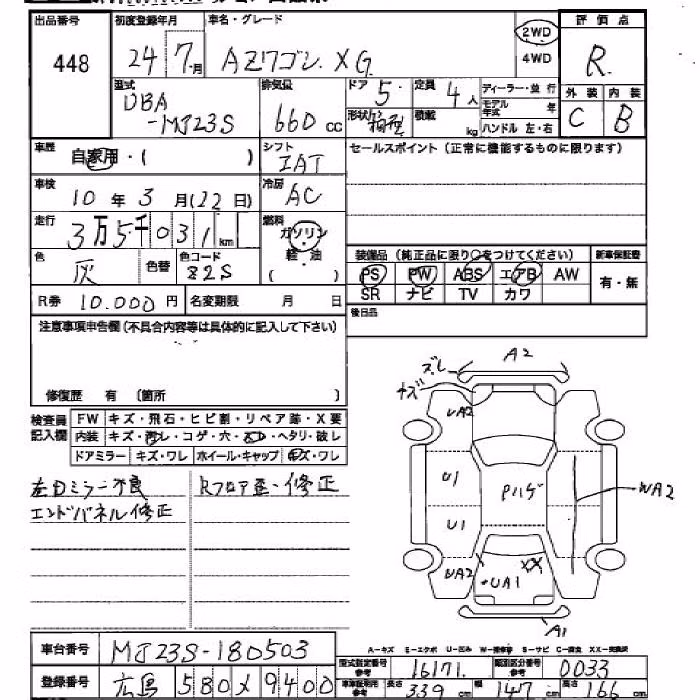 出品番号 初度登録年月 車名・グレード 評価点
448 24 7月 AZワゴン XG 2WD 4WD R
型式 排気量 ドア 定員 ディーラー・並行 外装 内装
DBA-MJ23S 660cc 5 4人 モデル年式 年 C B
形状 箱型 積載 kg ハンドル 左・右
車歴 自家用・( ) シフト IAT セールスポイント(正常に機能するものに限ります)
車検 10年3月(22日) 冷房 AC
走行 3万5千031km 燃料 ガソリン 軽油 ( )
色 灰 色替 色コード 22S
装備品(純正品に限り○をつけてください) 新車保証書
PS PW ABS エアB AW 有・無
SR ナビ TV カワ
R券 10.000円 名変期限 月 日 後日品
注意事項申告欄(不具合内容等は具体的に記入して下さい)
修復歴 有 〔箇所 〕
検査員記入欄 FW キズ・飛石・ヒビ割・リペア跡・X要
内装 キズ・汚レ・コゲ・穴・ ・ヘタリ・破レ
ドアミラー キズ・ワレ ホイール・キャップ キズ・ワレ
左Dミラー不良 Rフロア歪・修正
エンドパネル修正
A2
ズレ
キズ
UA2
U1 Pハゲ WA2
U1
UA2 UA1 XX
A1
A-キズ E-エクボ U-凹み W-補修跡 S-サビ C-腐食 XX-交換済
車台番号 MJ23S-180503
型式指定番号 参考 16171 類別区分番号 参考 0033
登録番号 広島 580 X 9400
車検証取得 参考 長さ 339cm 幅 147cm 高さ 166cm